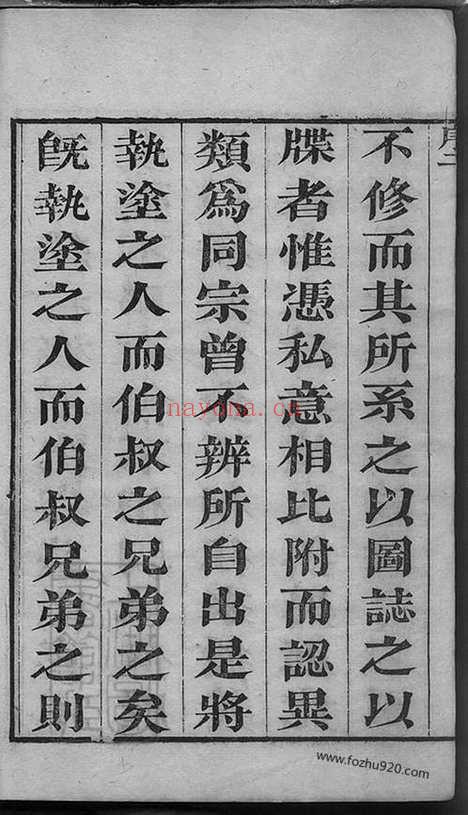 不修而其所系之以圖誌之以
牒者惟憑私意相比附而認異
類爲同宗曾不辨所自出是將
執塗之人而伯叔之兄弟之矣
旣執塗之人而伯叔兄弟之則
nayona.cn
www.fozhu920.com